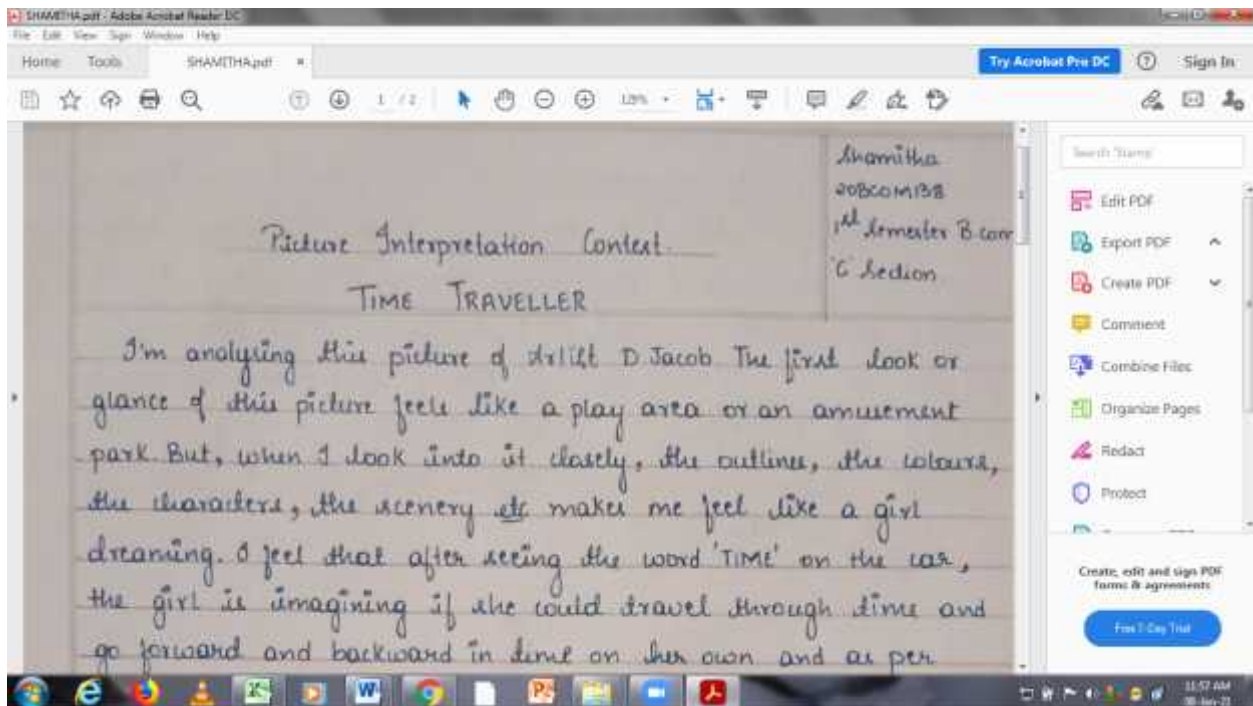 SHAMITHA.pdf - Adobe Acrobat Reader DC
File Edit View Sign Window Help
Home Tools SHAMITHA.pdf × Try Acrobat Pro DC Sign In
1 / 2 125%
Shamitha
20BCOM138
1st Semester B.com
'C' Section
Picture Interpretation Contest.
TIME TRAVELLER
I'm analysing this picture of Artist D Jacob The first look or
glance of this picture feels like a play area or an amusement
park. But, when I look into it closely, the outlines, the colours,
the characters, the scenery etc makes me feel like a girl
dreaming. I feel that after seeing the word 'TIME' on the car,
the girl is imagining if she could travel through time and
go forward and backward in time on her own and as per
Search 'Stamp'
Edit PDF
Export PDF
Create PDF
Comment
Combine Files
Organize Pages
Redact
Protect
Create, edit and sign PDF
forms & agreements
Free 7-Day Trial
11:57 AM